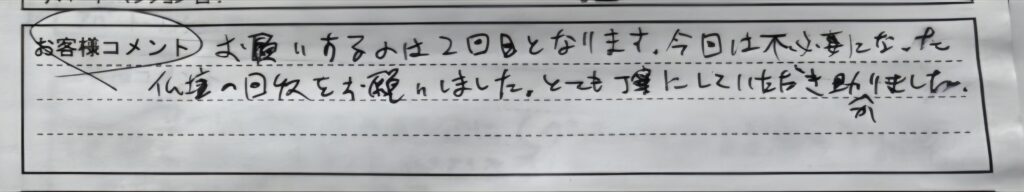 お客様コメント お願いするのは2回目となります。今回は不必要になった
仏壇の回収をお願いしました。とても丁寧にしていただき助かりました。